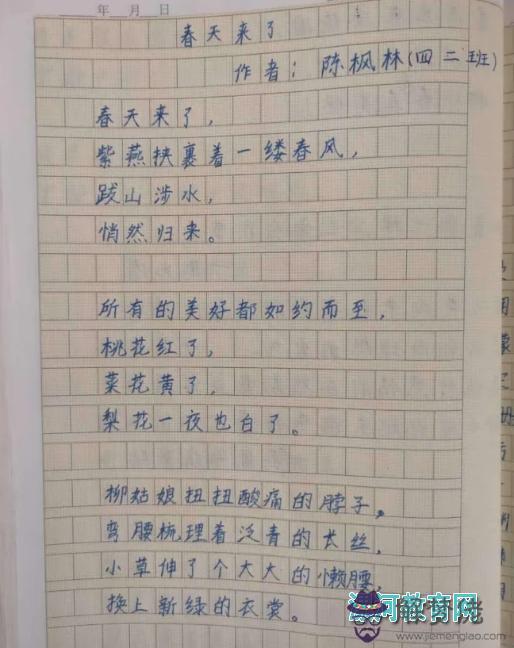 年 月 日
春天来了
作者：陈枫林（四二班）
春天来了，
紫燕挟裹着一缕春风，
跋山涉水，
悄然归来。
所有的美好都如约而至，
桃花红了，
菜花黄了，
梨花一夜也白了。
柳姑娘扭扭酸痛的脖子，
弯腰梳理着泛青的长丝，
小草伸了个大大的懒腰，
换上新绿的衣裳。
漯河教育网
解梦佬
www.jiemenglao.com